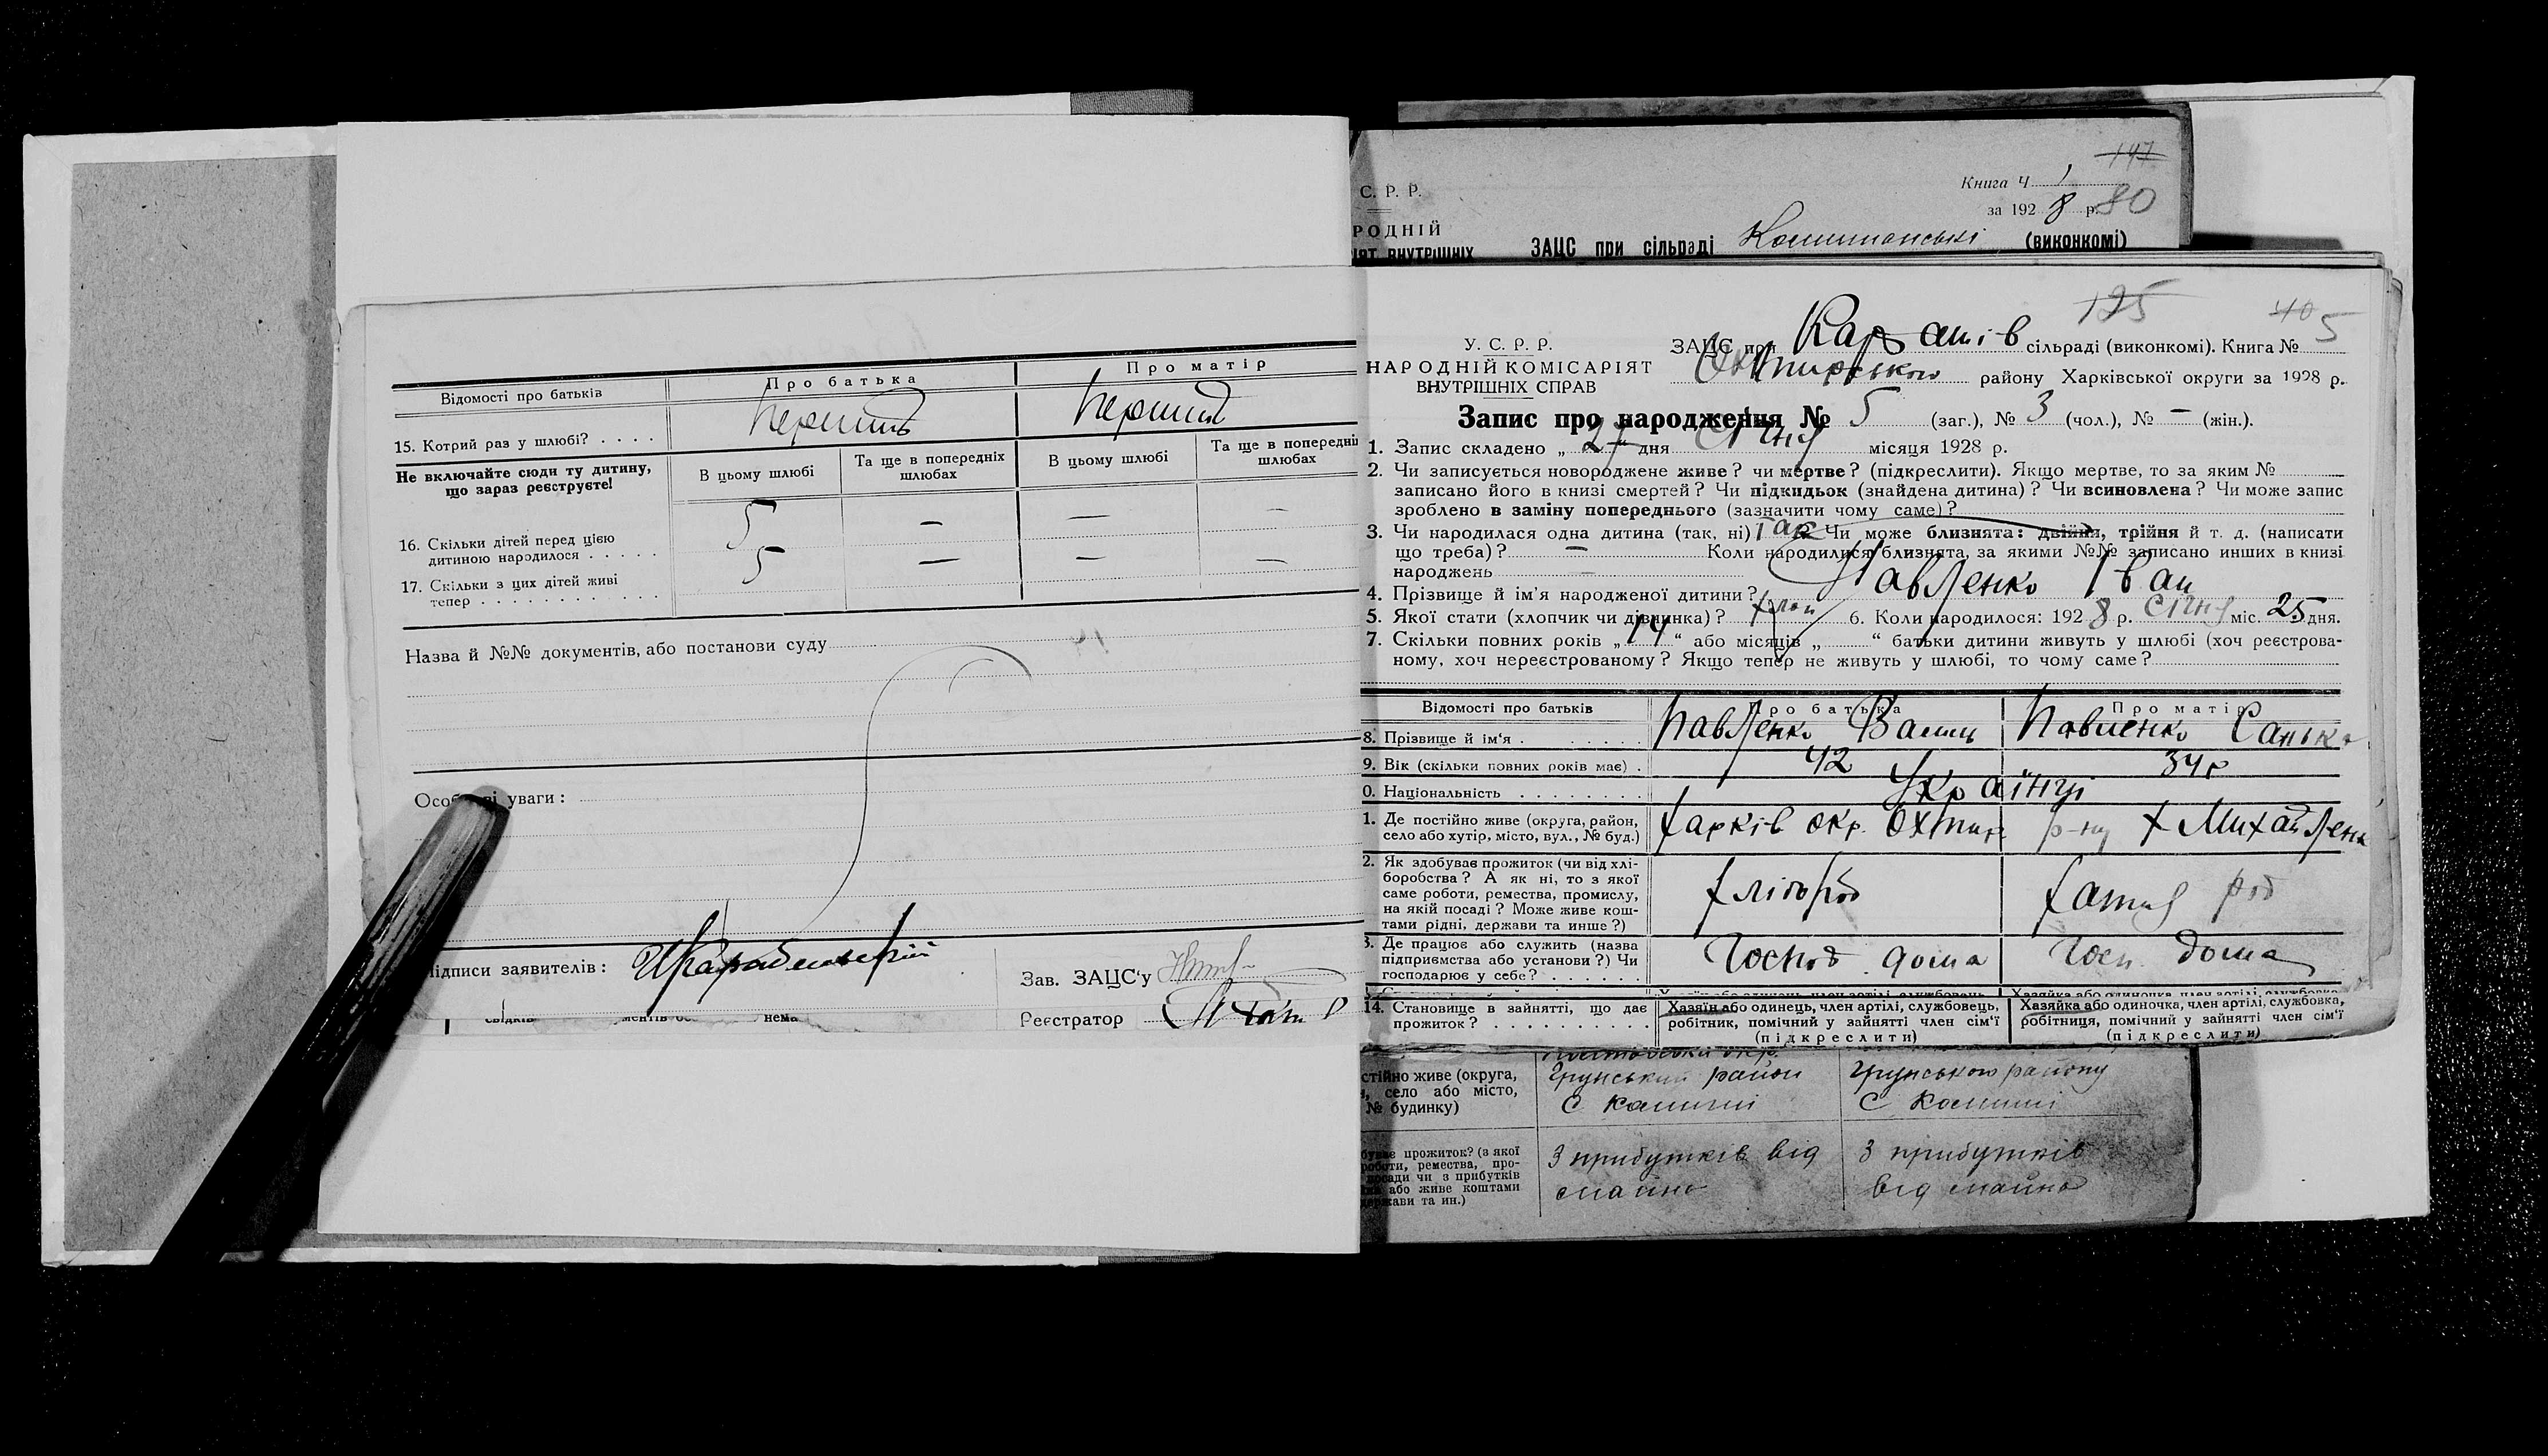 Відомості про батьків
Про батька
Про матір
15. Котрий раз у шлюбі? . . . .
Не включайте сюди ту дитину,
що зараз реєструєте!
В цьому шлюбі
Та ще в попередніх
шлюбах
В цьому шлюбі
Та ще в попередні
шлюбах
16. Скільки дітей перед цією
дитиною народилося . . . . .
5 — — —
17. Скільки з цих дітей живі
тепер . . . . . . . . . . . .
5 — — —
Назва й №№ документів, або постанови суду
уваги :
ідписи заявителів :
Зав. ЗАЦС'у
Реєстратор
нема
С. Р. Р.
РОДНІЙ
ВНУТРІШНІХ
Книга Ч 1
147
за 192 8 р. 80
ЗАЦС при сільраді (виконкомі)
125
40
У. С. Р. Р.
НАРОДНІЙ КОМІСАРІЯТ
ВНУТРІШНІХ СПРАВ
ЗАЦС при сільраді (виконкомі). Книга № 5
Охтирського району Харківської округи за 1928 р.
Запис про народження № 5 (заг.), № 3 (чол.), № — (жін.).
1. Запис складено „ 27 " дня січня місяця 1928 р.
2. Чи записується новороджене живе? чи мертве? (підкреслити). Якщо мертве, то за яким №
записано його в книзі смертей? Чи підкидьок (знайдена дитина)? Чи всиновлена? Чи може запис
зроблено в заміну попереднього (зазначити чому саме)?
3. Чи народилася одна дитина (так, ні) так Чи може близнята: двійня, трійня й т. д. (написати
що треба)? — Коли народилися близнята, за якими №№ записано инших в книзі
народжень —
4. Прізвище й ім'я народженої дитини? Павленко Іван
5. Якої статі (хлопчик чи дівчинка)? хлоп 6. Коли народилося: 192 8 р. січня міс. 25 дня.
7. Скільки повних років „ 14 " або місяців „ " батьки дитини живуть у шлюбі (хоч реєстрова-
ному, хоч нереєстрованому? Якщо тепер не живуть у шлюбі, то чому саме?
Відомості про батьків
Про батька
Про матір
8. Прізвище й ім'я . . . . . . . .
Павленко
Павленко Санька
9. Вік (скільки повних років має) .
42
34 р
0. Національність . . . . . . . .
Українці
1. Де постійно живе (округа, район,
село або хутір, місто, вул., № буд.)
Харків окр. Охтир р-ну х Михайленк
2. Як здобуває прожиток (чи від хлі-
боробства? А як ні, то з якої
саме роботи, ремества, промислу,
на якій посаді? Може живе кош-
тами рідні, держави та инше?)
хлібороб
хатня роб
3. Де працює або служить (назва
підприємства або установи?) Чи
господарює у себе? . . . . . .
Господ дома
Госп. дома
14. Становище в зайнятті, що дає
прожиток? . . . . . . . . . .
Хазяїн або одинець, член артілі, службовець,
робітник, помічний у зайнятті член сім'ї
(підкреслити)
Хазяйка або одиночка, член артілі, службовка,
робітниця, помічний у зайнятті член сім'ї
(підкреслити)
стійно живе (округа,
село або місто,
№ будинку)
Грунський район
Грунського району
прожиток? (з якої
роботи, ремества, про-
сади чи з прибутків
або живе коштами
держави та ин.)
З прибутків від
майна
З прибутків
від майна